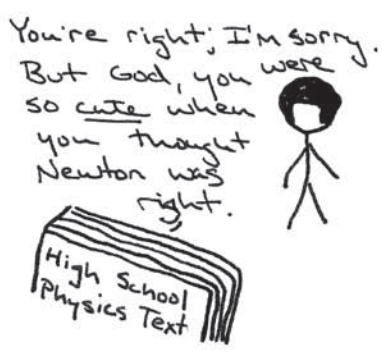 You're right; I'm sorry.
But God, you were
so cute when
you thought
Newton was
right.
High School
Physics Text